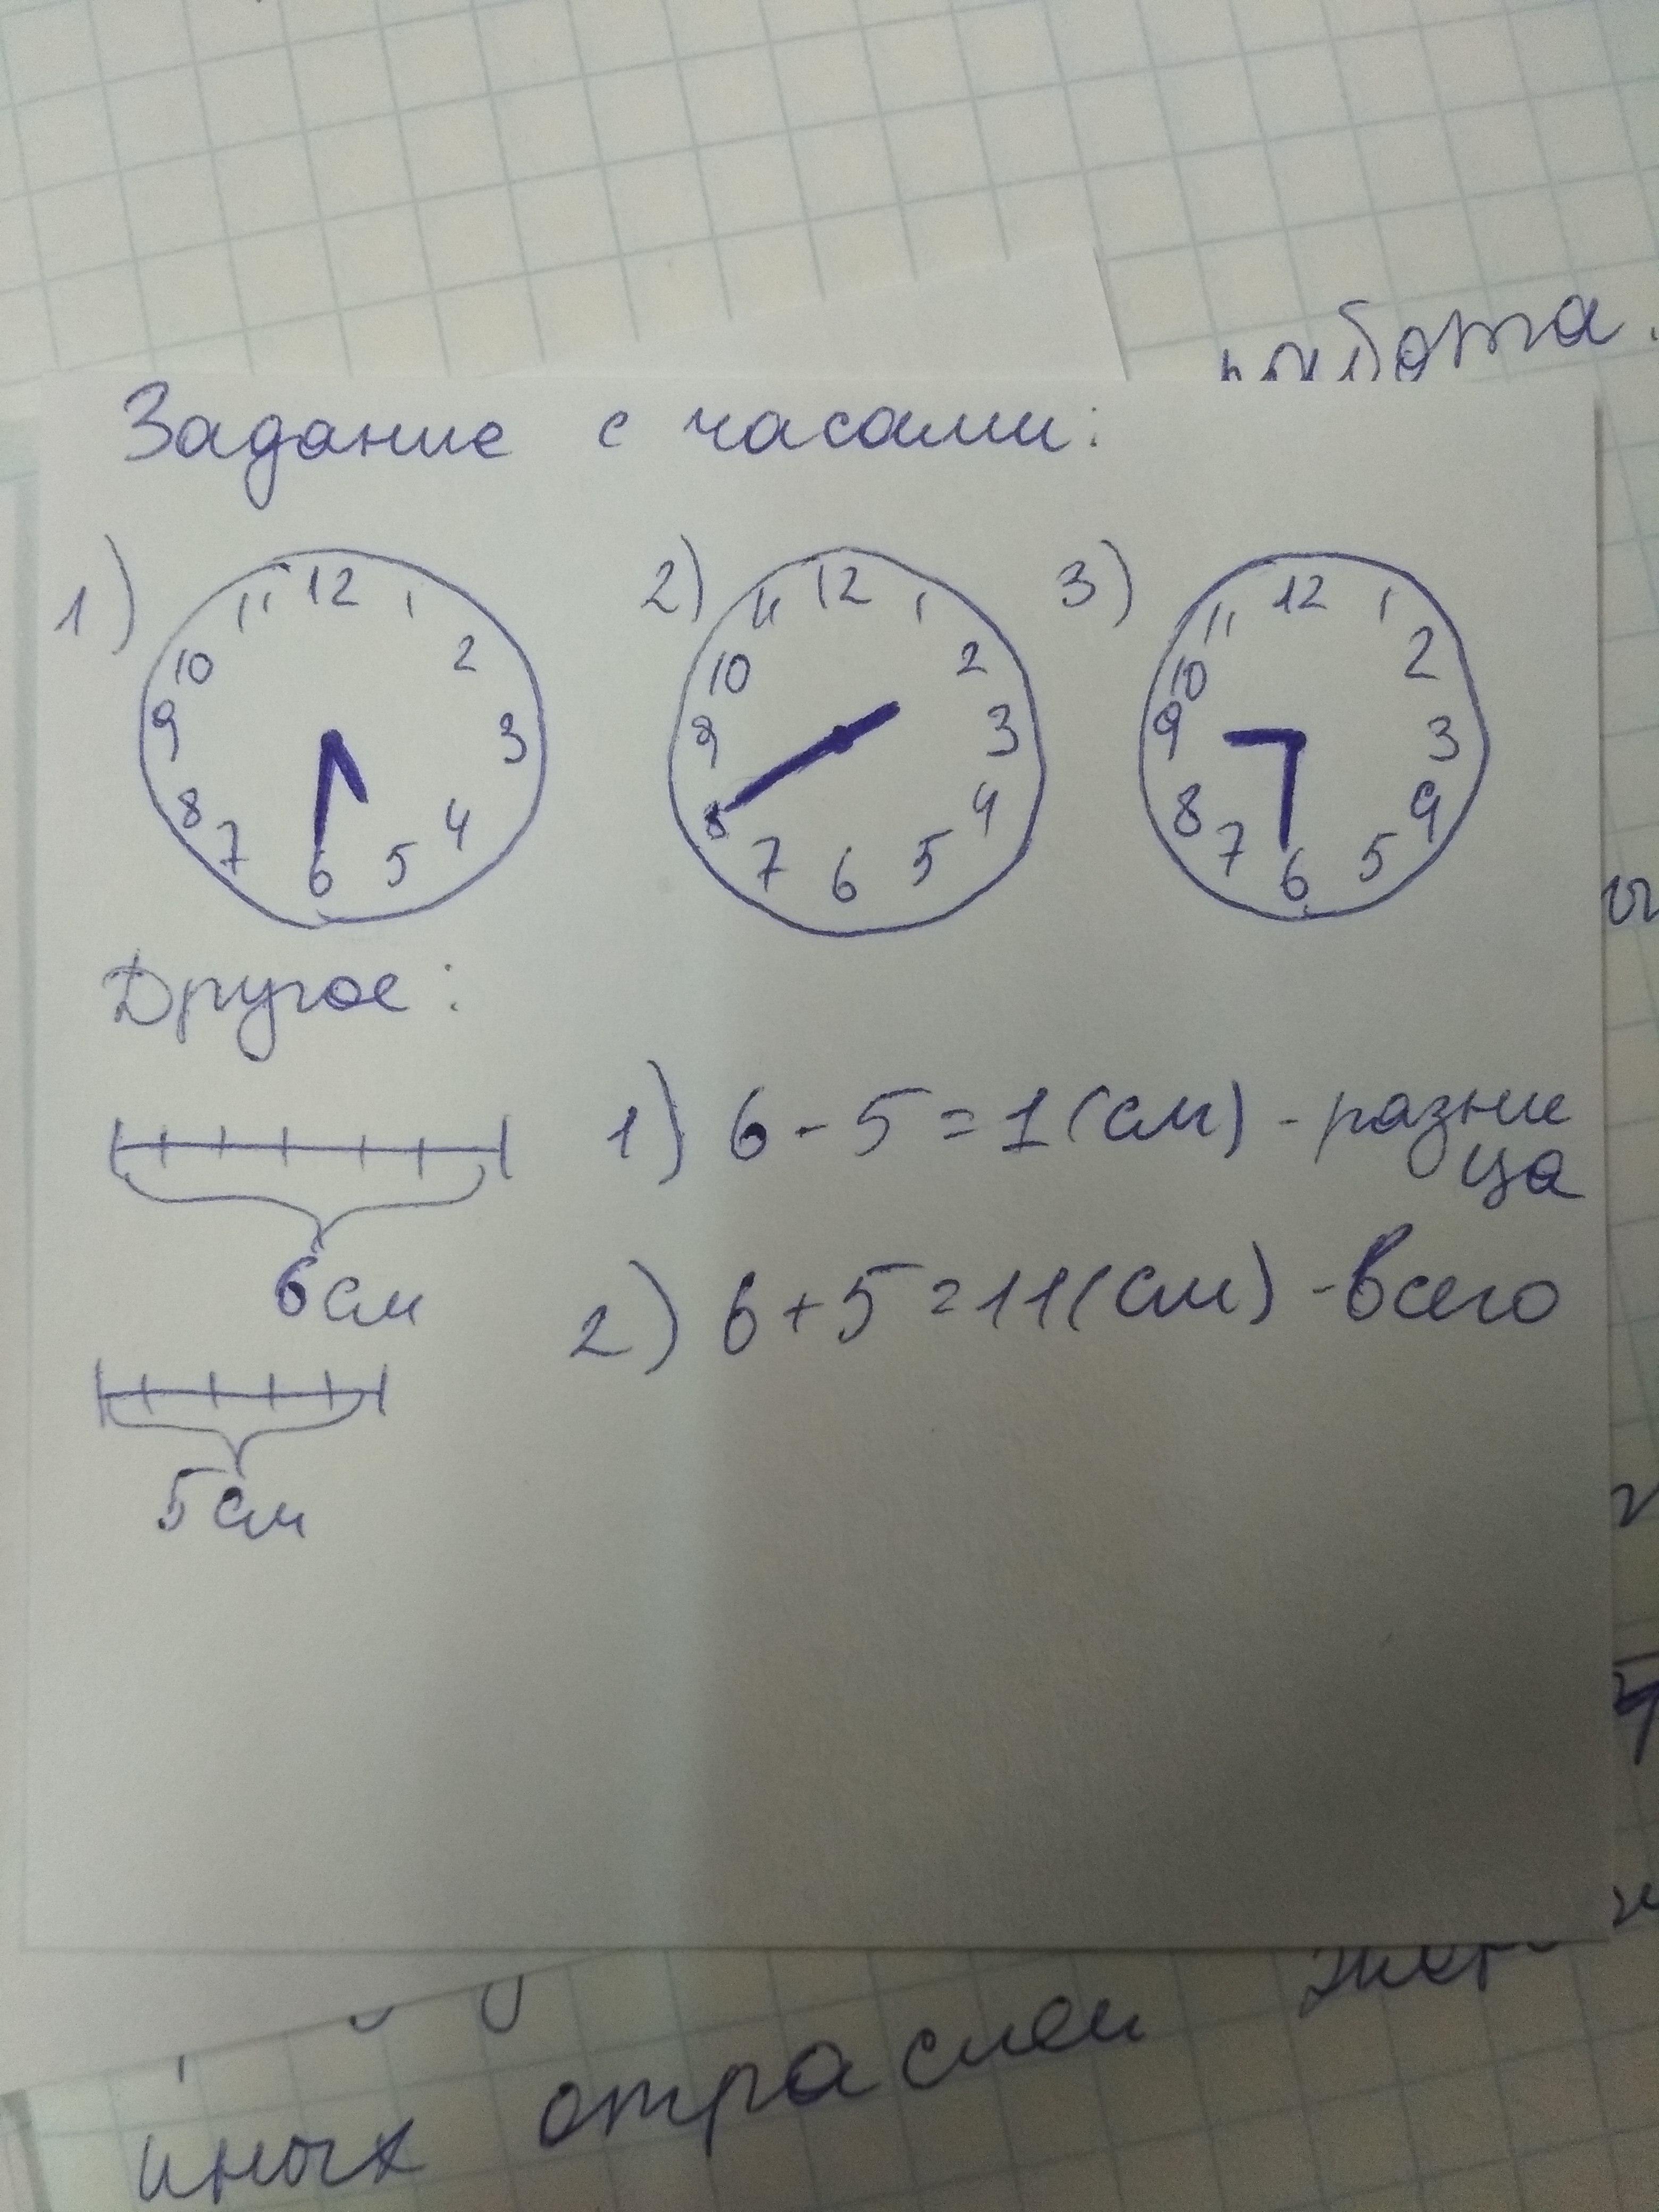 работа.
Задание с часами:
1) 12 1 2 3 4 5 6 7 8 9 10 11
2) 12 1 2 3 4 5 6 7 8 9 10 11
3) 12 1 2 3 4 5 6 7 8 9 10 11
Другое:
1) 6 - 5 = 1 (см) - разни
ца
6 см
2) 6 + 5 = 11 (см) - всего
5 см
отраслей